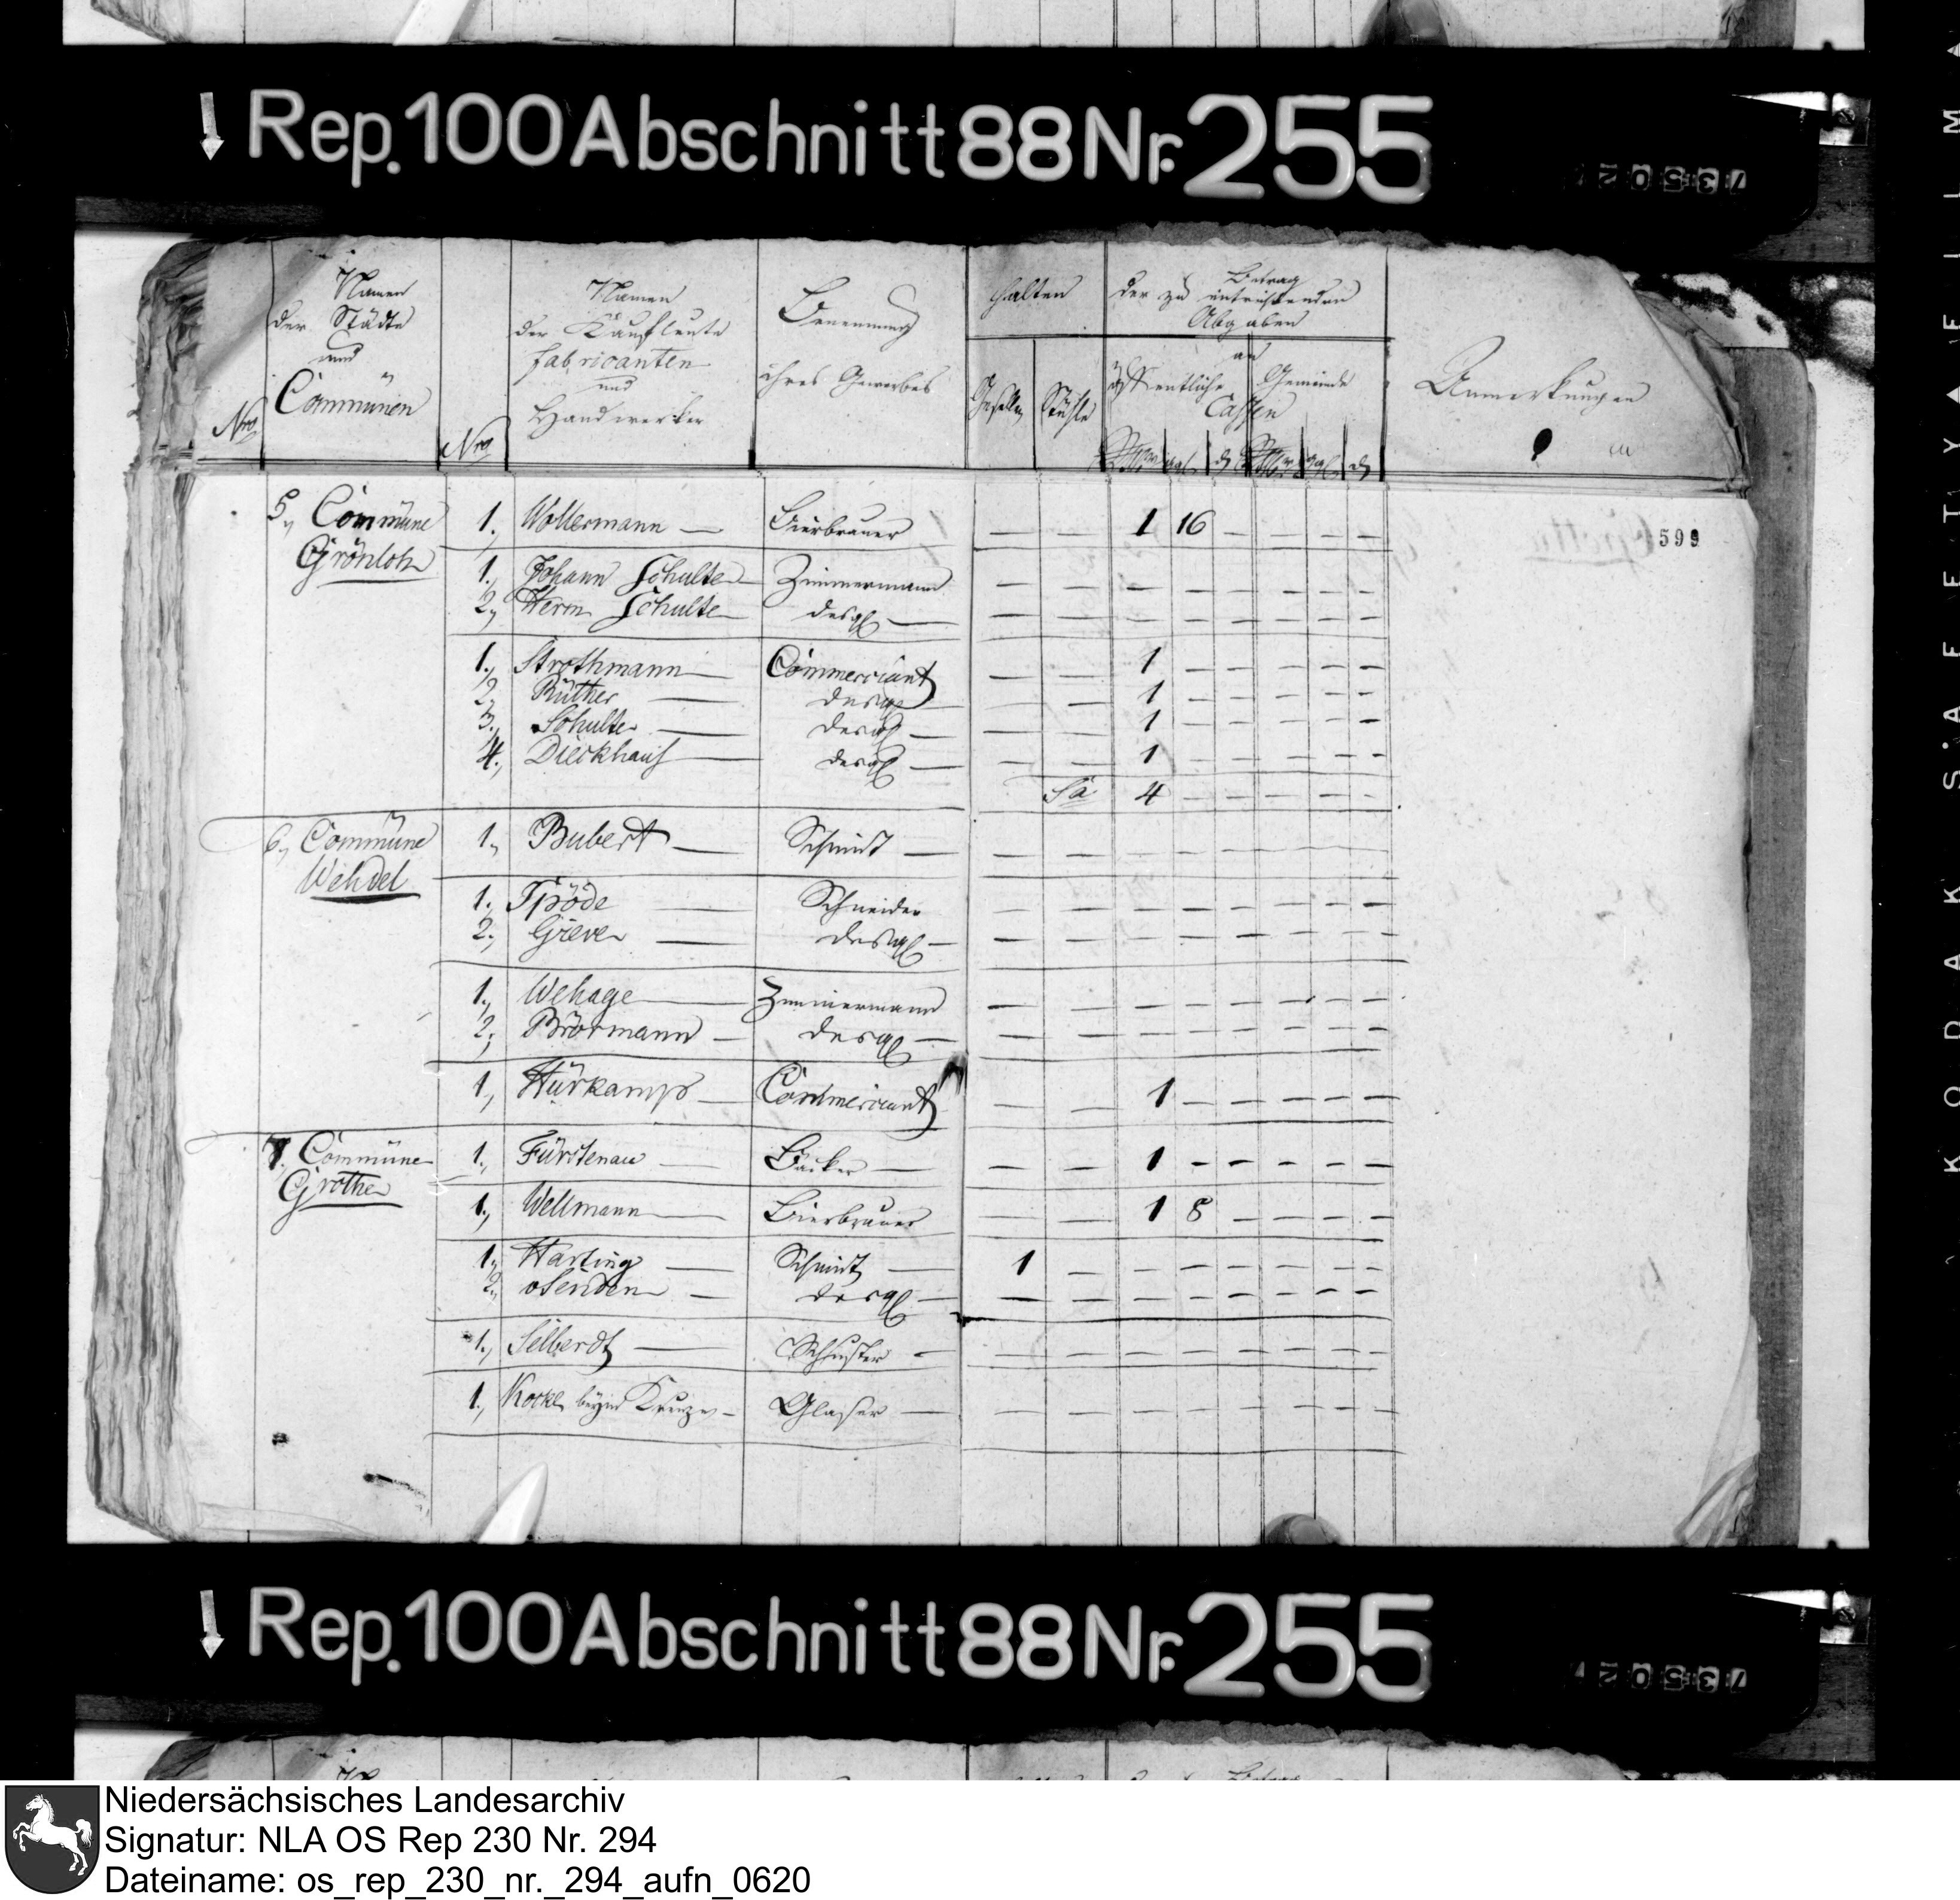 Rep. 100 Abschnitt 88 Nr. 255
Nro
Namen
der Städte
und
Communen
Nro
Namen
der Kaufleute
fabricanten
und
Handwerker
Benennung
ihres Gewerbes
halten
Gesellen
Stühle
Betrag
der zu entrichtenden
Abgaben
an
öffentliche
Gemeinde
Cassen
Anmerkungen
599
5., Commüne Grönloh 1. Wollermann — Bierbrauer — — 1 16 — — — —
1., Johann Schulte — Zimmermann — — — — — — — —
2., Herm Schulte — desgl — — — — — — — — —
1., Strothmann — Commerciant — — 1 — — — — —
2., Rüther — desgl — — — 1 — — — — —
3., Schulte — desgl — — — 1 — — — — —
4., Dieckhaus — desgl — — — 1 — — — — —
Sa 4 — — — — —
6., Commüne Wehdel 1., Bubert — Schmidt — — — — — — — — —
1., Tpöde — Schneider — — — — — — — —
2., Greve — desgl — — — — — — — — —
1., Wehage — Zimmermann — — — — — — — —
2., Brörmann — desgl — — — — — — — — —
1., Hürkamp — Commerciant — — 1 — — — — —
7., Commüne Grothe 1., Fürstenau — Bäcker — — — 1 — — — — —
1., Wellmann — Bierbrauer — — 1 8 — — — —
1., Harting — Schmidt — 1 — — — — — — —
2., osenden — desgl — — — — — — — — —
1., Selberdt — Schuster — — — — — — — — —
1., Kocke beym Kreuze — Glaser — — — — — — — — —
Rep. 100 Abschnitt 88 Nr. 255
Niedersächsisches Landesarchiv
Signatur: NLA OS Rep 230 Nr. 294
Dateiname: os_rep_230_nr._294_aufn_0620
KODAK SAFETY FILM